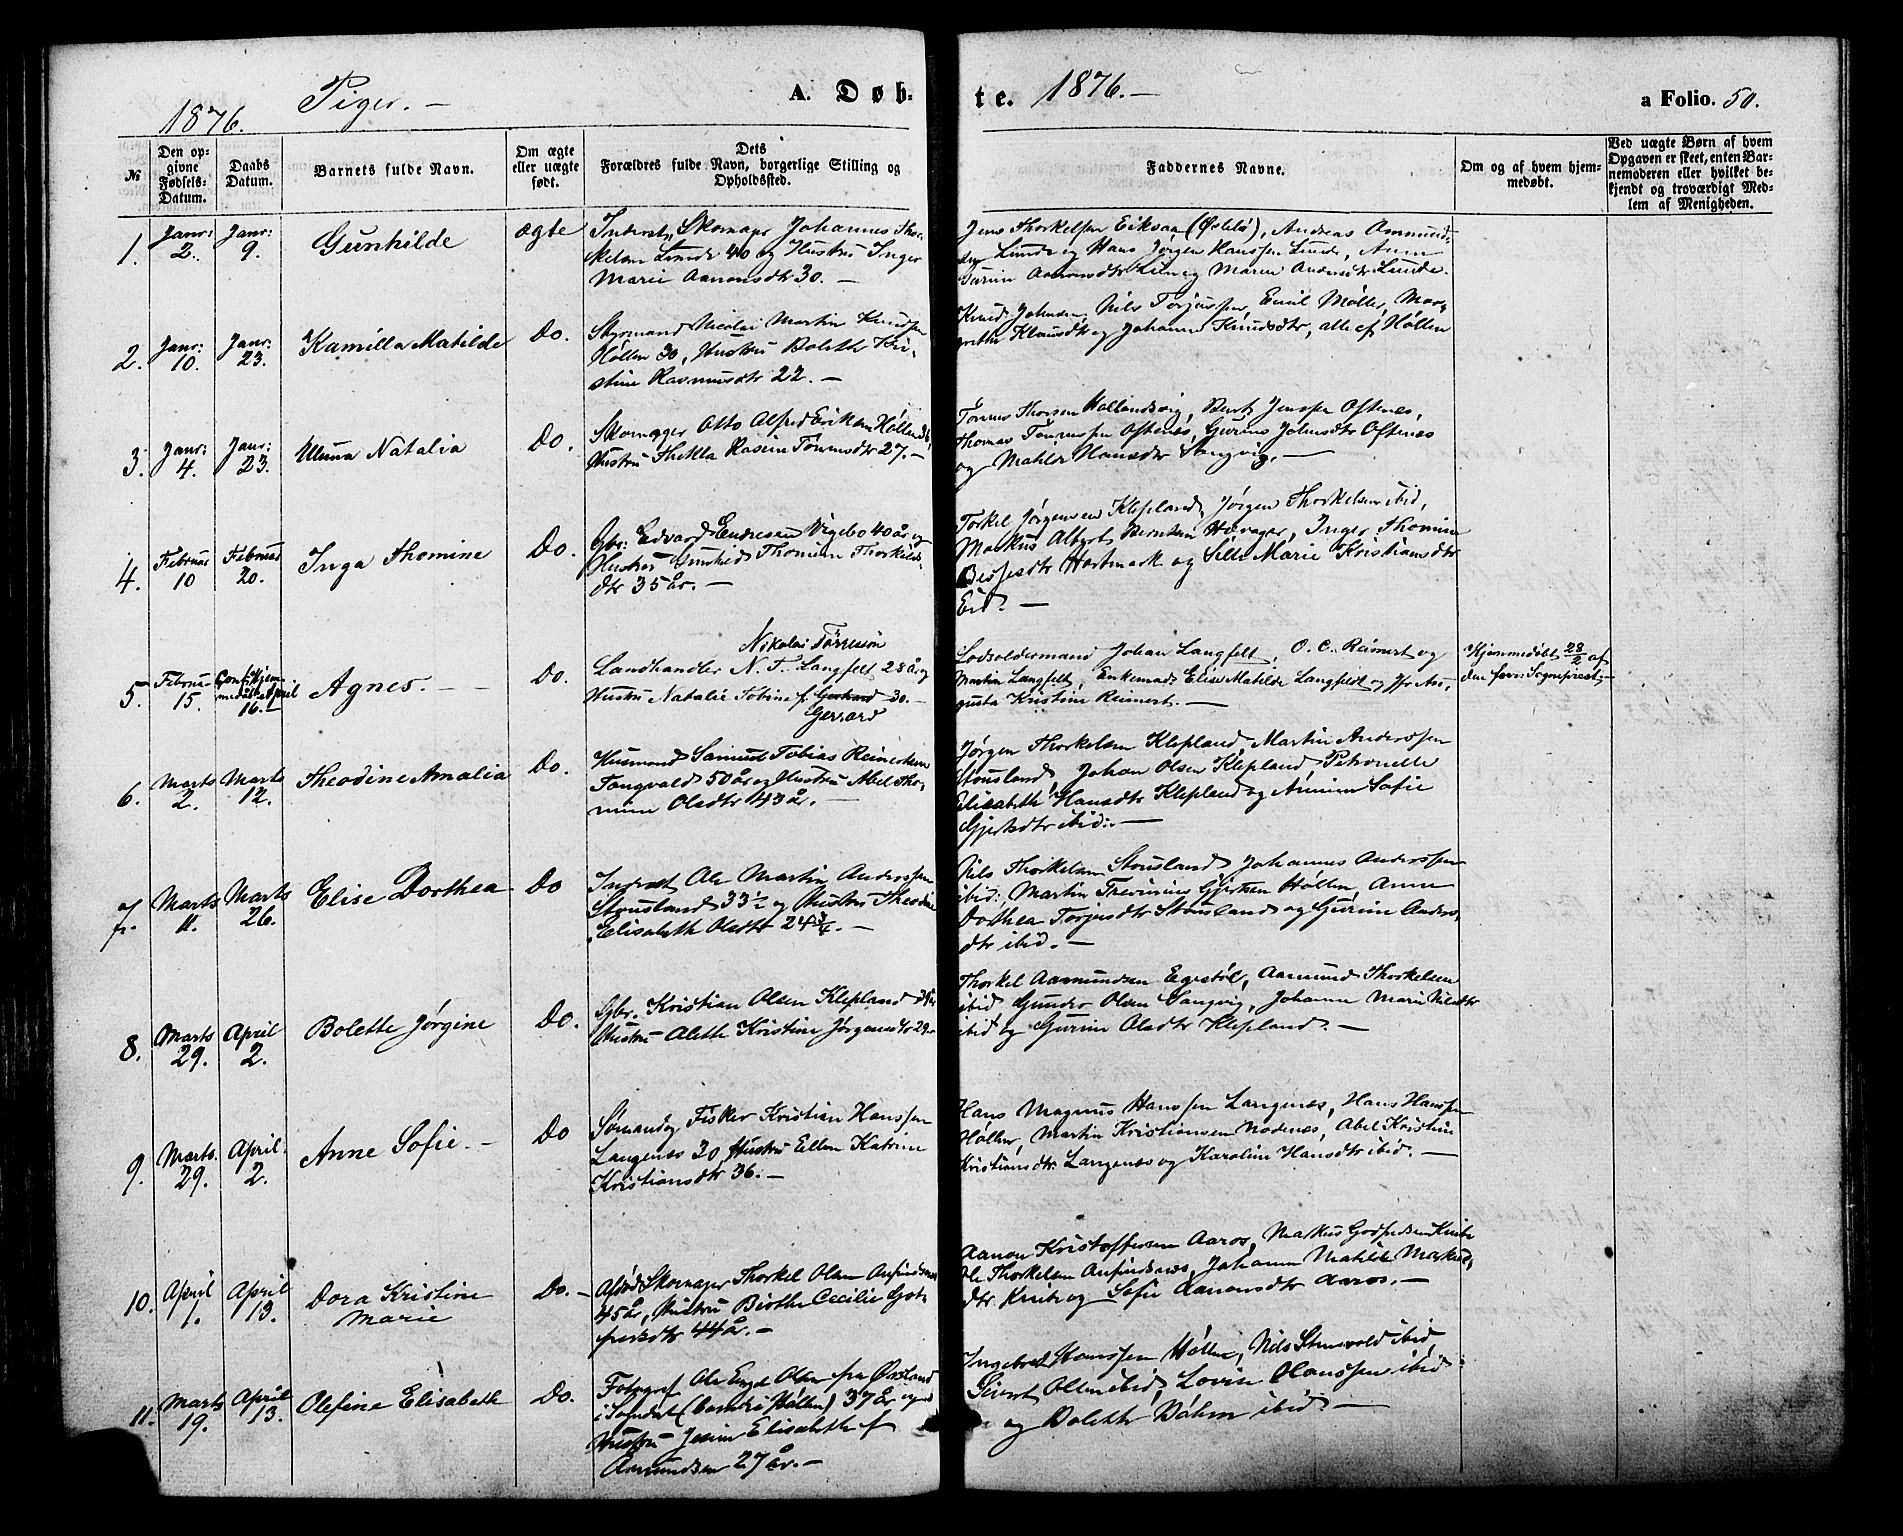 1876. Piger. —
A. Døb-
te. 1876. —
a Folio. 50.
№
Den op-
givne
Fødsels-
Datum.
Daabs
Datum.
Barnets fulde Navn.
Om ægte
eller uægte
født.
Dets
Forældres fulde Navn, borgerlige Stilling og
Opholdssted.
Faddernes Navne.
Om og af hvem hjem-
medøbt.
Ved uægte Børn af hvem
Opgaven er skeet, enten Bar-
nemoderen eller hvilket be-
kjendt og troværdigt Med-
lem af Menigheden.
1.
Janr:
2.
Janr:
9.
Gunhilde
ægte
Inderst, Skomager Johannes Thor-
kelsen Lunde 40 og Hustru Inger
Marie Aanonsdtr 30. —
Jens Thorkelsen Eiksaa (Øslebø), Andreas Ammund-
sen Lunde og Hans Jørgen Hanssen Lunde, Anne
Gurine Aanonsdtr Lien og Maren Andersdtr Lunde.
2.
Janr:
10.
Janr:
23.
Kamilla Matilde
Do.
Styrmand Nicolai Martin Knudsen
Høllen 30, Hustru Bolette Kri-
stine Rasmusdtr 22. —
Knud Johnsen, Nils Torjussen, Emil Møller, Mar-
grethe Klausdtr og Johanne Knudsdtr, alle af Høllen
3.
Janr:
4.
Janr:
23.
Natalia
Do.
Skomager Otto Alfred Eriksen Høllen
Hustru Thekla Rasine Tønnesdtr 27. —
Tønnes Thorsen Hallandsvig, Berth Jensen Oftenes,
Thomas Tønnessen Oftenes, Gurine Johnsdtr Oftenes
og Mahle Hansdtr Langvig. —
4.
Februar
10
Februar
20.
Inga Thomine
Do.
Gbr: Edvard Endresen Vigebo 40 år og
Hustru Gunhild Thomine Thorkilds
dtr 35 år. —
Torkel Jørgensen Klepland, Jørgen Thorkelsen ibid,
Markus Albert Berntsen Havager, Inger Thomine
Hartmark og Sille Marie Kristiansdtr
Eid. —
5.
Februar
15.
April
16. —
Agnes. —
Do.
Nikolai Tørresson
Landhandler N. T. Langfelt 28 år og
Hustru Natalie Tobine f. Gerhard 30. —
Gerrard
Lodsoldermand Johan Langfelt, O. C. Reimert og
Martin Langfelt, Enkemad: Elise Matilde Langfeldt og Jfr Au-
gusta Kristine Reimert. —
Hjemmedøbt 28/2 af
den forr: Sognepræst. —
6.
Marts
2.
Marts
12.
Theodine Amalia
Do.
Husmand Samuel Tobias Reinertsen
Tangvald 50 år og Hustru Abel Tho-
mine Olsdtr 43 år. —
Jørgen Thorkelsen Klepland, Martin Anderssen
Stousland, Johan Olsen Klepland Petronelle
Elisabeth Hansdtr Klepland og Sofie
Gjertsdtr ibid: —
7.
Marts
11.
Marts
26.
Elise Dorthea
Do
Inderst Ole Martin Anderssen
Stousland 33 1/2 og Hustru Theodine
Elisabeth Olsdtr 24 3/4. —
Nils Thorkelsen Stousland, Johannes Anderssen
ibid:, Martin Gjertsen Høllen, Anne
Dorthea Torjusdtr Stousland og Gurine Anders-
dtr ibid. —
8.
Marts
29.
April
2.
Bolette Jørgine
Do.
Gbr. Kristian Olsen Klepland
Hustru Alette Kristine Jørgensdtr 29. —
Thorkel Aamundsen Egestøl, Aamund Thorkelsen
ibid Gunder Olsen Langvig, Johanne Marie Nilsdtr
ibid og Gurine Olsdtr Klepland. —
9.
Marts.
29.
April.
2.
Anne Sofie. —
Do
Sømand og Fisker Kristian Hanssen
Langenes 30 Hustru Ellen Katrine
Kristiansdtr 36. —
Hans Magnus Hanssen Langenes, Hans Hanssen
Høllen, Martin Kristiansen Nodenes, Abel Kristine
Kristiansdtr Langenes og Karoline Hansdtr ibid. —
10.
April
1.
April
13.
Dora Kristine
Marie
Do. —
Skomager Thorkel Olsen Anfindsnes
45 år, Hustru Birthe Cecilie Got-
fredsdtr 44 år. —
Aanon Kristoffersen Aaros, Markus Godfredsen Knibe
Ole Thorkelsen Anfindsnes, Johanne Matilde Markus-
dtr. Knibe og Sofie Aanonsdtr Aaros. —
11.
Marts
19.
April
13.
Olefine Elisabeth
Do.
Fotograf Ole Olsen fra Øvsland
i Søgndal (boende i Høllen) 37 år og
Hustru Jesine Elisabeth f
Aamundsen 27 år. —
Ingebret Hanssen Høllen, Nils Stensvold ibid,
Sivert Olsen ibid, Lovise Hanssen ibid
og Bolette Bøhm ibid —